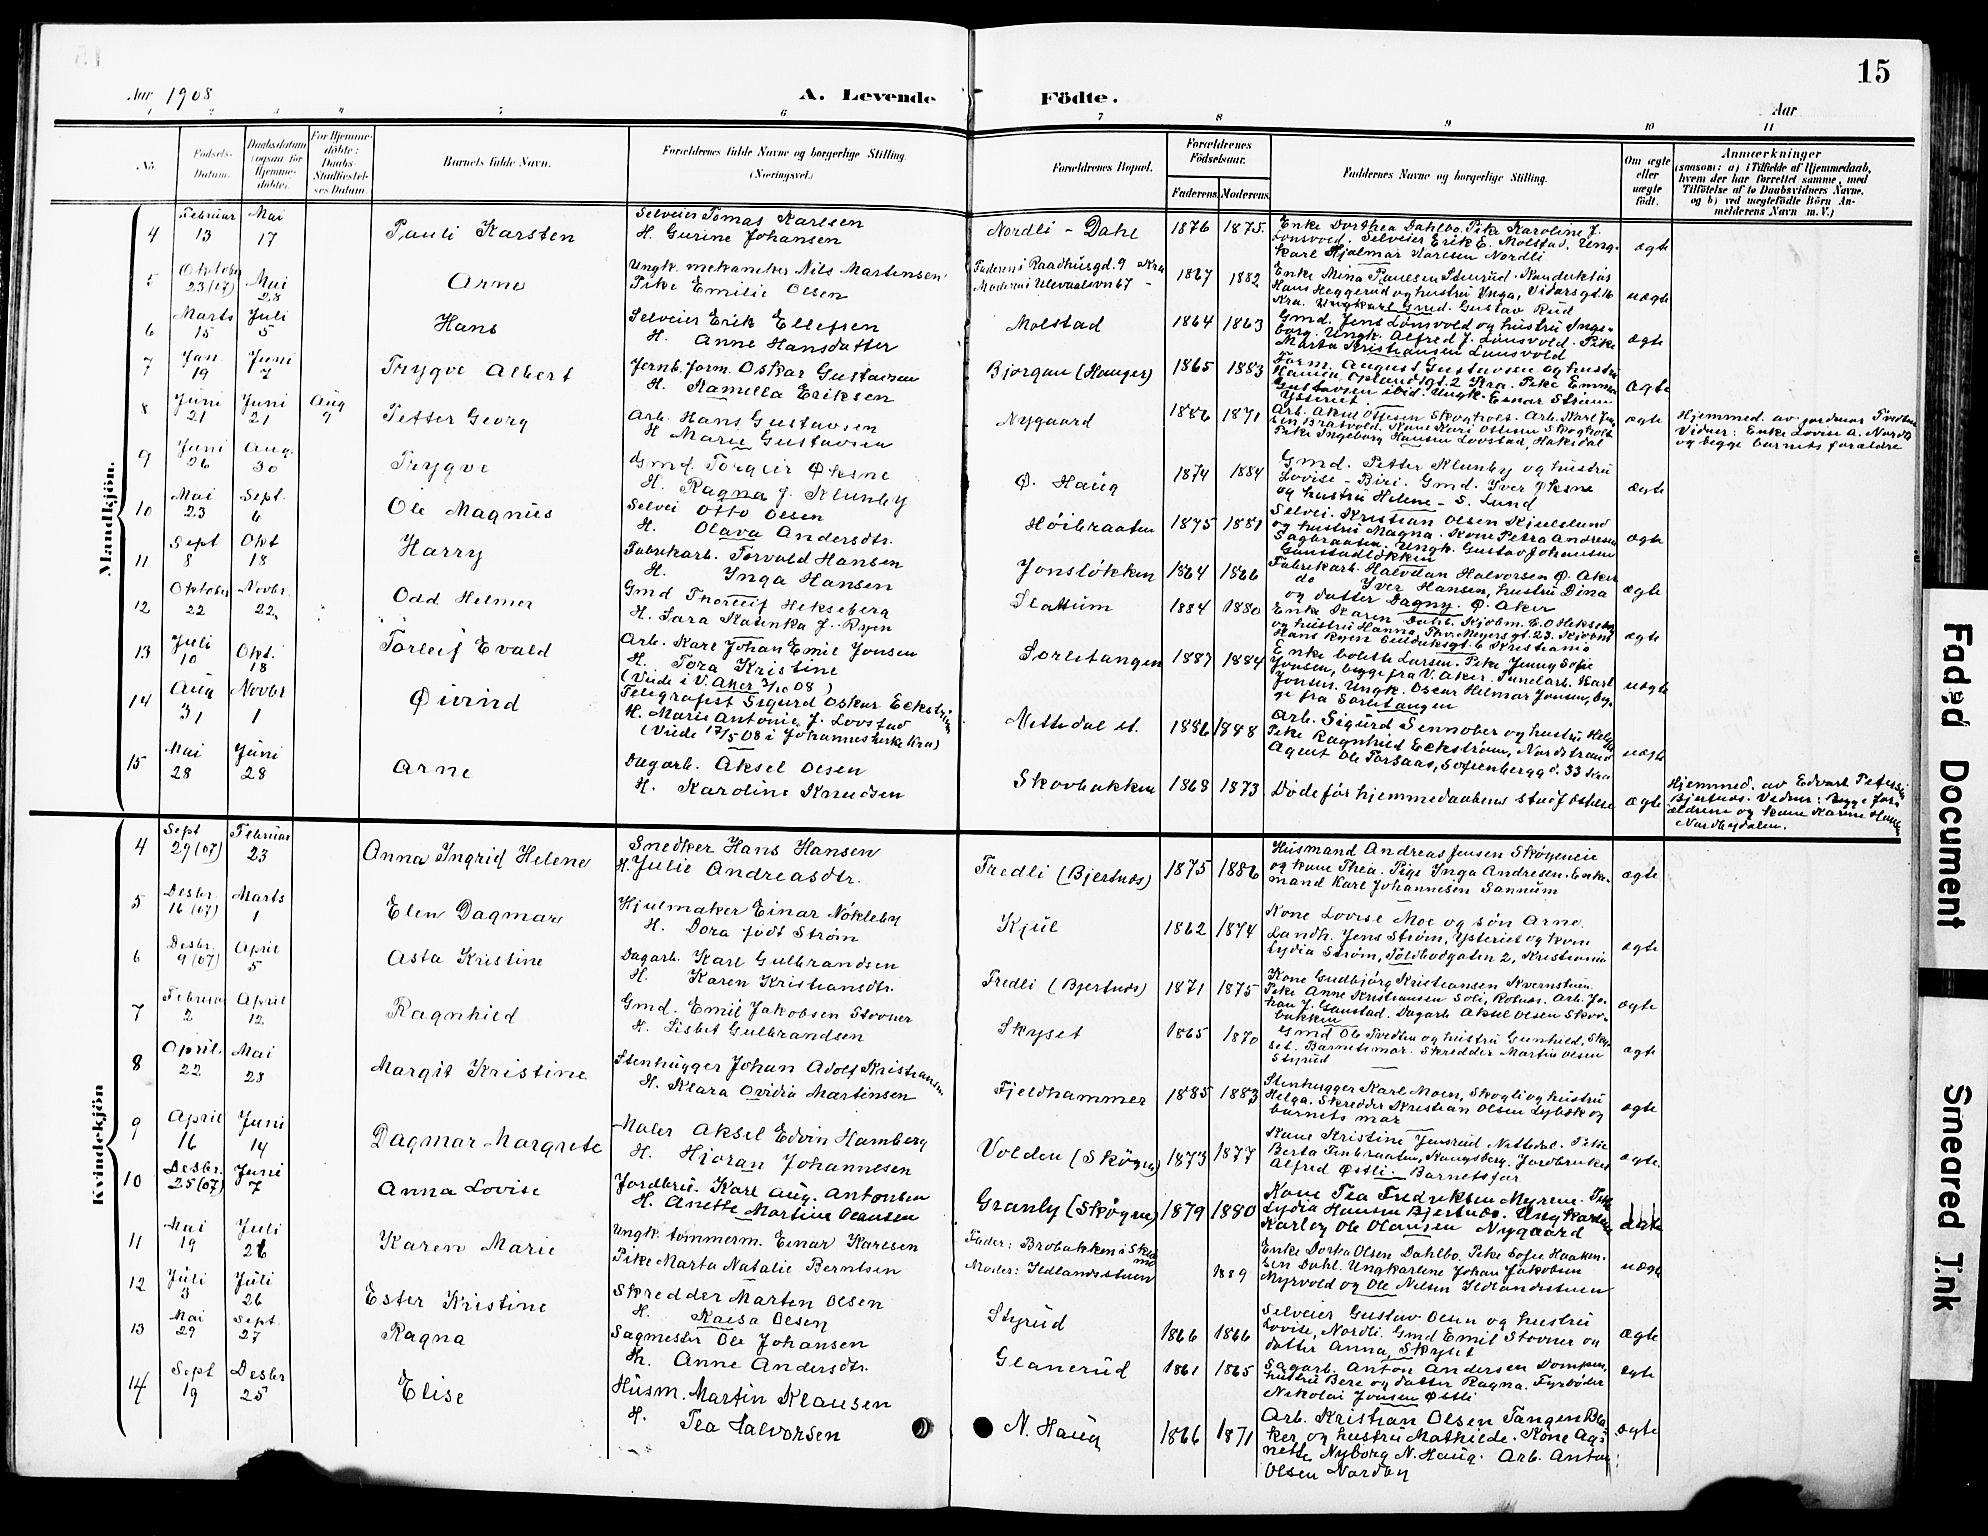 15
Aar 1908
A. Levende
Födte.
Aar
1 2 3 4 5 6 7 8 9 10 11
No.
Födsels-
Datum.
Daabsdatum
(ogsaa for
Hjemme-
döbte).
For Hjemme-
döbte:
Daabs-
Stadfæstel-
ses Datum.
Barnets fulde Navn.
Forældrenes fulde Navne og borgerlige Stilling.
(Næringsvei.)
Forældrenes Bopæl.
Forældrenes
Födselsaar.
Faderens
Moderens
Faddernes Navne og borgerlige Stilling.
Om ægte
eller
uægte
født.
Anmærkninger
(saasom: a) i Tilfælde af Hjemmedaab,
hvem der har forrettet samme, med
Tilföielse af to Daabsvidners Navne.
og b) ved uægtefødte Börn An-
melderens Navn m. V.)
Mandkjön.
4 Februar 13 Mai 17 Pauli Karsten
Selveier Tomas Karlsen
H. Gurine Johansen
Nordli - Dahl 1876 1875
Enke Dorthea Dahlbo. Pike Karoline J.
Lønsvold. Selveier Erik E. Molstad, Ung-
karl Hjalmar Karlsen Nordli
ægte
5 Oktober 23(07) Mai 28 Arne
Ungk. mekaniker Nils Martinsen
Pike Emilie Olsen
Faderens Raadhusgd. 9 Kra
Moderens Ulevaalsvn 67 -
1867 1882
Enke Mina Paulsen Stuerud. Konduktør
Hans Heggerud og hustru Unga, Vidarsgt. 16
Kra. Ungkarl Gmd. Gustav Rud
uægte
6 Marts 15 Juli 5 Hans
Selveier Erik Ellefsen
H. Anne Hansdatter
Molstad 1864 1863
Gmd. Jens Lønsvold og hustru Inge-
borg. Ungk. Alfred J. Lønsvold. Pike
Marta Kristiansen Lønsvold
ægte
7 Jan 19 Juni 7 Trygve Albert
Jernb. form. Oskar Gustavsen
H. Kamilla Eriksen
Bjørgan (Hauger) 1865 1883
Form. August Gustavsen og hustru
Hanna, Oplandsgt. 2 Kra. Pike Emma
Gustavsen ibid. Ungk. Einar Strøm
Ysteriet.
ægte
8 Juni 21 Juni 21 Aug 9 Petter Georg
Arb. Hans Gustavsen
H Marie Gustavsen
Nygaard 1886 1871
Arb. Akul Ottesen Skogholt. Arb. Karl Jen
sen Bratvold. Kone Kari Ottesen Skogholt
Pike Ingeborg Hansen Lovstad, Hakedal
ægte
Hjemmed. av jordmor Tredten
Vidner: Enke Lovise A. Nordli
og begge barnets forældre
9 Juni 26 Aug. 30 Trygve
Gmd. Torgeir Øksne
H. Ragna J. Klunby
Ø. Haug 1874 1884
Gmd. Petter Klunby og hustru
Lovise - Biri. Gmd. Yver Øksne
og hustru Helene - S. Lund
ægte
10 Mai 23 Sept. 6 Ole Magnus
Selvei Otto Olsen
H. Olava Andersdtr.
Høibraaten 1875 1881
Selvei. Kristian Olsen Kjulslund
og hustru Magna. Kone Petra Andresen
Sagbraaten. Ungk. Gustav Johansen
Gunstadløkken
ægte
11 Sept 8 Okt 18 Harry
Fabrikarb. Torvald Hansen
H. Ynga Hansen
Jonsløkken 1864 1866
Fabrikarb. Halvdan Halvorsen Ø. Aker
do Yver Hansen, hustru Dina
og datter Dagny. Ø. Aker
ægte
12 Oktober 22 Novbr. 22 Odd Helmer
Gmd Thorleif Hekseberg
H. Sara Katinka J. Ryen
Slattum 1884 1880
Enke Karen Dahl. Kjøbm. E. O Hekseberg
og hustru Hanna, Thv. Meyers gt. 23. Kjøbm
Hans Ryen Eilduksgt. 6 Kristiania
ægte
13 Juli 10 Okt. 18 Torleif Evald
Arb. Karl Johan Emil Jonsen
H. Tora Kristine
(Viede i V. Aker 3/10 08)
Sorlitangen 1887 1884
Enke bolette Larsen. Pike Jenny Sofie
Jonsen, begge fra V. Aker. Tunelarb. Karl
Jonsen. Ungk. Oscar Helmar Jonsen, beg-
ge fra Sørlitangen
uægte
14 Aug 31 Novbr 1 Øivind
Telegrafist Sigurd Oskar Eckstrøm
H. Marie Antonie J. Lovstad
(Viede 17/5 08 i Johanneskirke Kra)
Nittedal st. 1886 1888
Arb. Sigurd Sennober og hustru Helga
Pike Ragnhild Eckstrøm, Nordstrand
Agent Ole Torsaas, Sofienberggd. 33 Kra
uægte
15 Mai 28 Juni 28 Arne
Dagarb. Aksel Olsen
H. Karoline Knudsen
Skovbakken 1868 1873
Døde før hjemmedaabens stadfæstelse
ægte
Hjemmed. av Edvart Petersen
Bjertnæs. Vidner: Begge for-
ældrene og kone Karine Hansen
Nordbydalen.
Kvindekjön
4 Sept 29(07) Februar 23 Anna Ingrid Helene
Snedker Hans Hansen
H. Julie Andreasdtr.
Fredli (Bjertnæs) 1875 1886
Husmand Andreas Jensen Skøyeneie
og kone Thea. Pige Inga Andresen. Enke-
mand Karl Johannesen Sannum
ægte
5 Desbr. 16(07) Marts 1 Elen Dagmar
Hjulmaker Einar Nøkleby
H. Dora født Strøm
Kjul 1862 1874
Kone Lovise Moe og søn Arne.
Landh. Jens Strøm, Ysteriet og kone
Lydia Strøm, Toldbodgaten 2, Kristiania
ægte
6 Desbr. 9(07) April 5 Asta Kristine
Dagarb. Karl Gulbrandsen
H. Karen Kristiansdtr.
Fredli (Bjertnæs) 1871 1875
Kone Gudbjørg Kristiansen Kvernstuen
Pike Anne Kristiansen Soli, Rotnæs. Arb. Jo-
han J. Gaustad. Dagarb Aksel Olsen Skov-
bakken
ægte
7 Februar 2 April 12 Ragnhild
Gmd. Emil Jakobsen Stovner
H. Lisbet Gulbrandsen
Skyset 1865 1870
Gmd Ole Tredten og hustru Gunhild, Sky-
set. Barnets mor. Skredder Martin Olsen
Styrud
ægte
8 April 22 Mai 28 Margit Kristine
Stenhugger Johan Adolf Kristiansen
H. Klara Ovidia Martinsen
Fjeldhammer 1885 1883
Stenhugger Karl Moen, Skogli og hustru
Helga. Skredder Kristian Olsen Lybæk og
barnets mor
ægte
9 April 16 Juni 14 Dagmar Margrete
Maler Aksel Edvin Hamberg
H. Hjoran Johannesen
Volden (Skøyen) 1873 1877
Kone Kristine Jensrud Nittedal. Pike
Berta Finbraaten, Kongsberg. Jordbruker
Alfred Østli. Barnets far
ægte
10 Desbr. 25(07) Juni 7 Anna Lovise
Jordbru. Karl Aug. Antonsen
H. Anette Martine Olausen
Granly (Skøyen) 1879 1880
Kone Tea Fredriksen Myrene. Pike
Lydia Hansen Bjertnæs. Ungkarlene
Karl og Ole Olausen Nygaard
ægte
11 Mai 19 Juli 26 Karen Marie
Ungk. tømmerm. Einar Karlsen
Pike Marta Natalie Berntsen
Fader: Brobakken i Skedsmo
Moder: Ildlandsstuen
1889
Enke Dorta Olsen Dahlbo. Pike Sofie Haaken-
sen Dahl. Ungkarlene Johan Jakobsen
Myrvold og Ole Nilsen Ildlandsstuen
uægte
12 Juli 3 Juli 26 Ester Kristine
Skredder Marten Olsen
H. Kaisa Olsen
Styrud 1866 1866
Selveier Gustav Olsen og hustru
Lovise, Nordli. Gmd Emil Stovner og
datter Anna, Skyset
ægte
13 Mai 29 Sept. 27 Ragna
Sagmester Ole Johansen
H. Anne Andersdtr.
Glanerud 1861 1865
Sagarb. Anton Andersen Dompen,
hustru Bere og datter Ragna. Fyrbøter
Nikolai Jonsen Østli
ægte
14 Sept 19 Desbr 25 Elise
Husm. Martin Klausen
H. Tea Halvorsen
N. Haug 1866 1871
Arb. Kristian Olsen Tangen Bla-
ker og hustru Mathilde. Kone Ag-
nette Nyborg N. Haug. Arb. Anton
Olsen Nordby
ægte
Faded Document
Smeared Ink